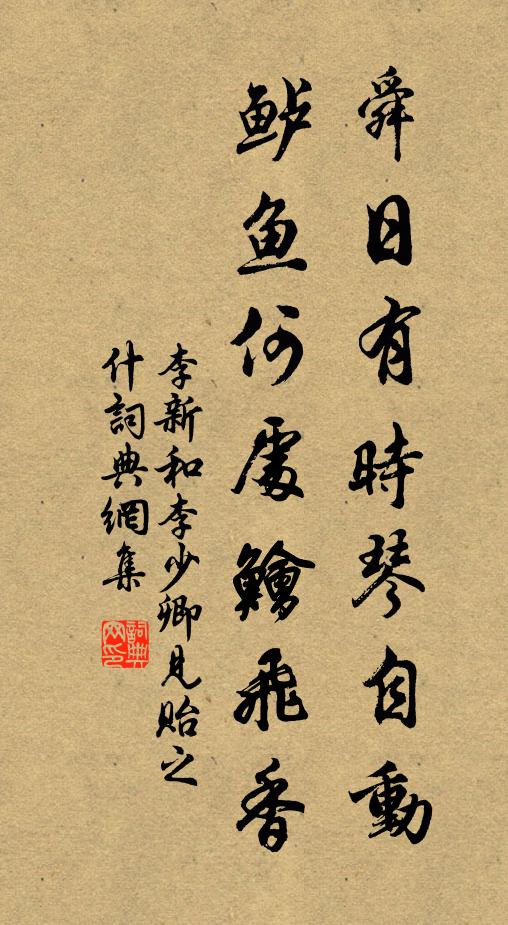 舜日有時琴自動
鲈魚何處鱠飛香
李新和李少卿見貽之
什詞典網集
詞典
网印